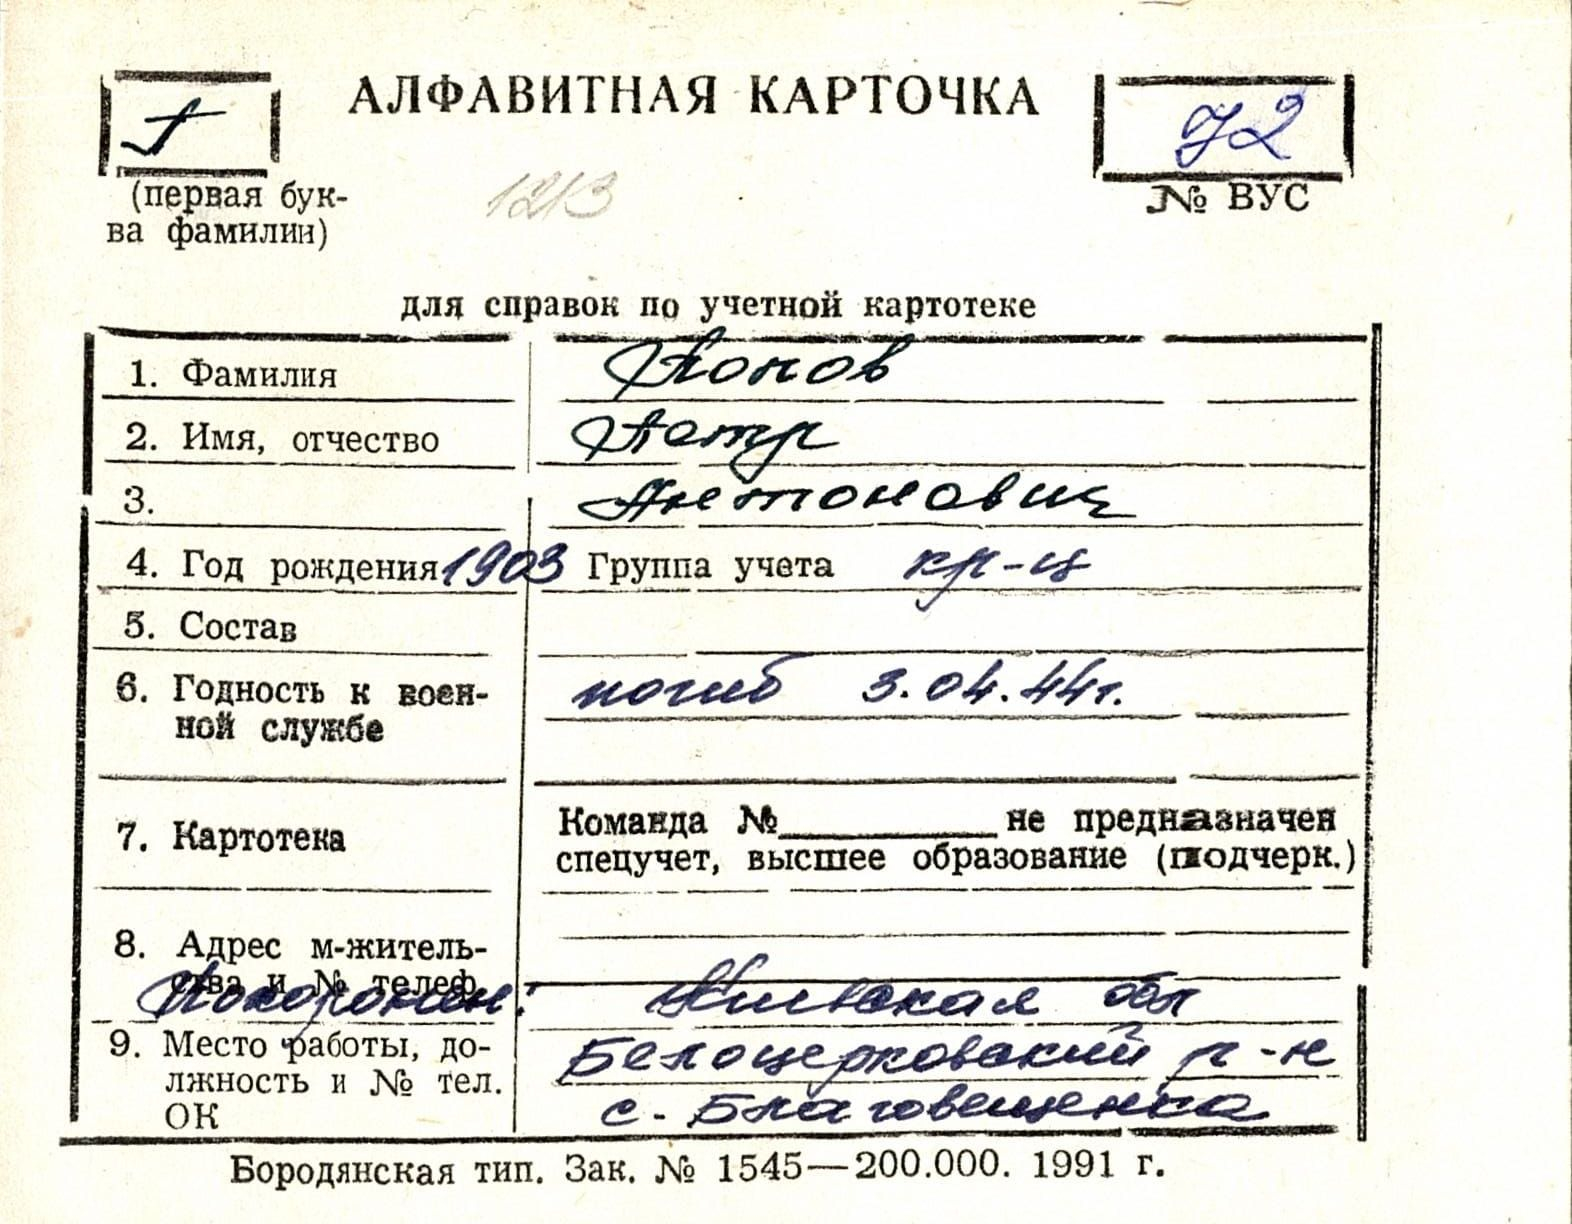 АЛФАВИТНАЯ КАРТОЧКА
72
(первая бук-
ва фамилии)
№ ВУС
1213
для справок по учетной картотеке
1. Фамилия Попов
2. Имя, отчество Петр
3. Антонович
4. Год рождения 1903 Группа учета кр-ц
5. Состав
6. Годность к воен- погиб 3.04.44г.
ной службе
7. Картотека Команда №__________не предназначен
спецучет, высшее образование (подчерк.)
8. Адрес м-житель-
ства и № телеф.
Похоронен: Киевская обл
9. Место работы, до- Белоцерковский р-н
лжность и № тел. с. Благовещенка
ОК
Бородянская тип. Зак. № 1545—200.000. 1991 г.